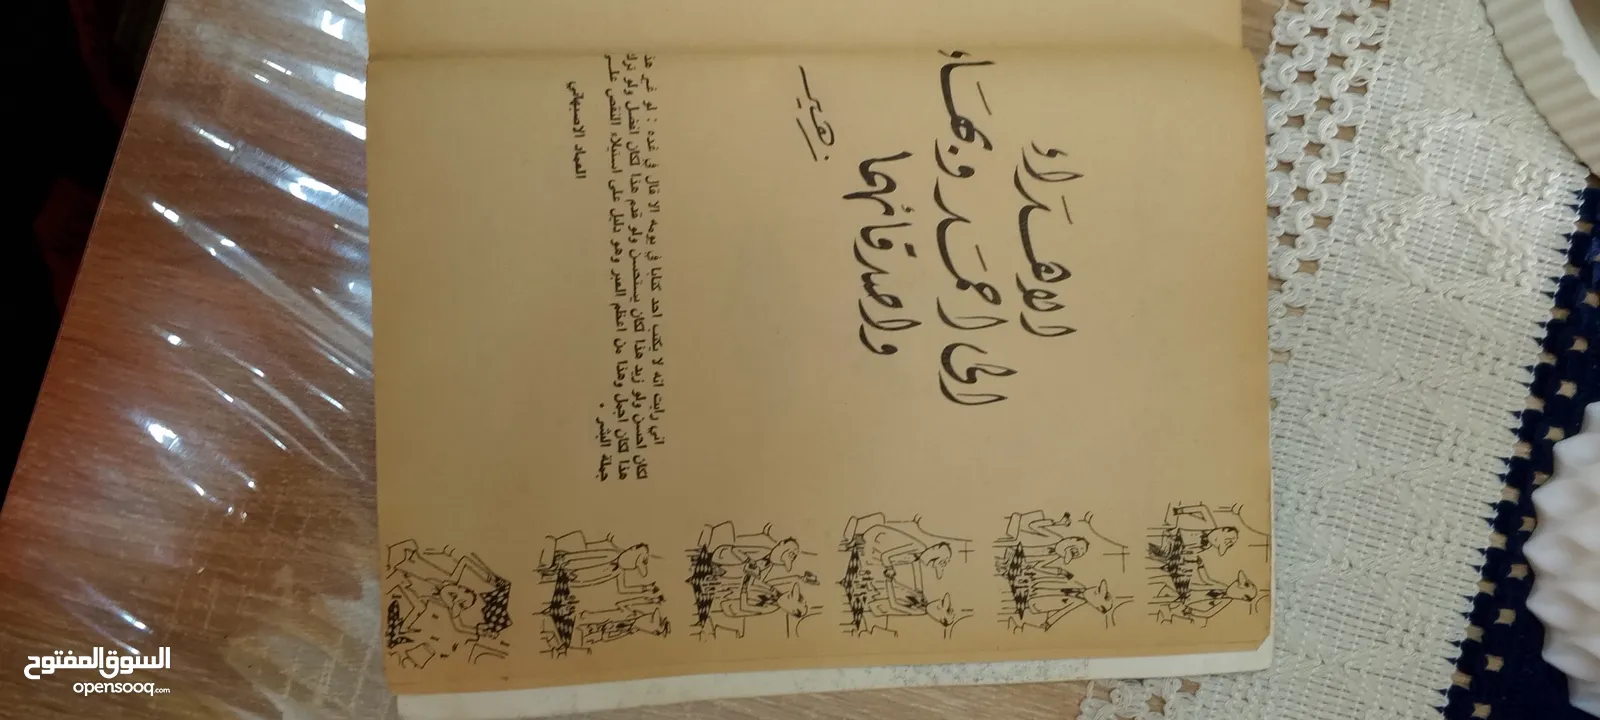 الاهداء
الى احمد وبهاء
واصدقائهما
زهير
اني رايت انه لا يكتب احد كتابا في يومه الا قال في غده : لو غير هذا
لكان احسن ولو زيد هذا لكان يستحسن ولو قدم هذا لكان افضل ولو ترك
هذا لكان اجمل وهذا من اعظم العبر وهو دليل على استيلاء النقص على
جملة البشر .
العماد الاصبهاني
السوق المفتوح
opensooq.com